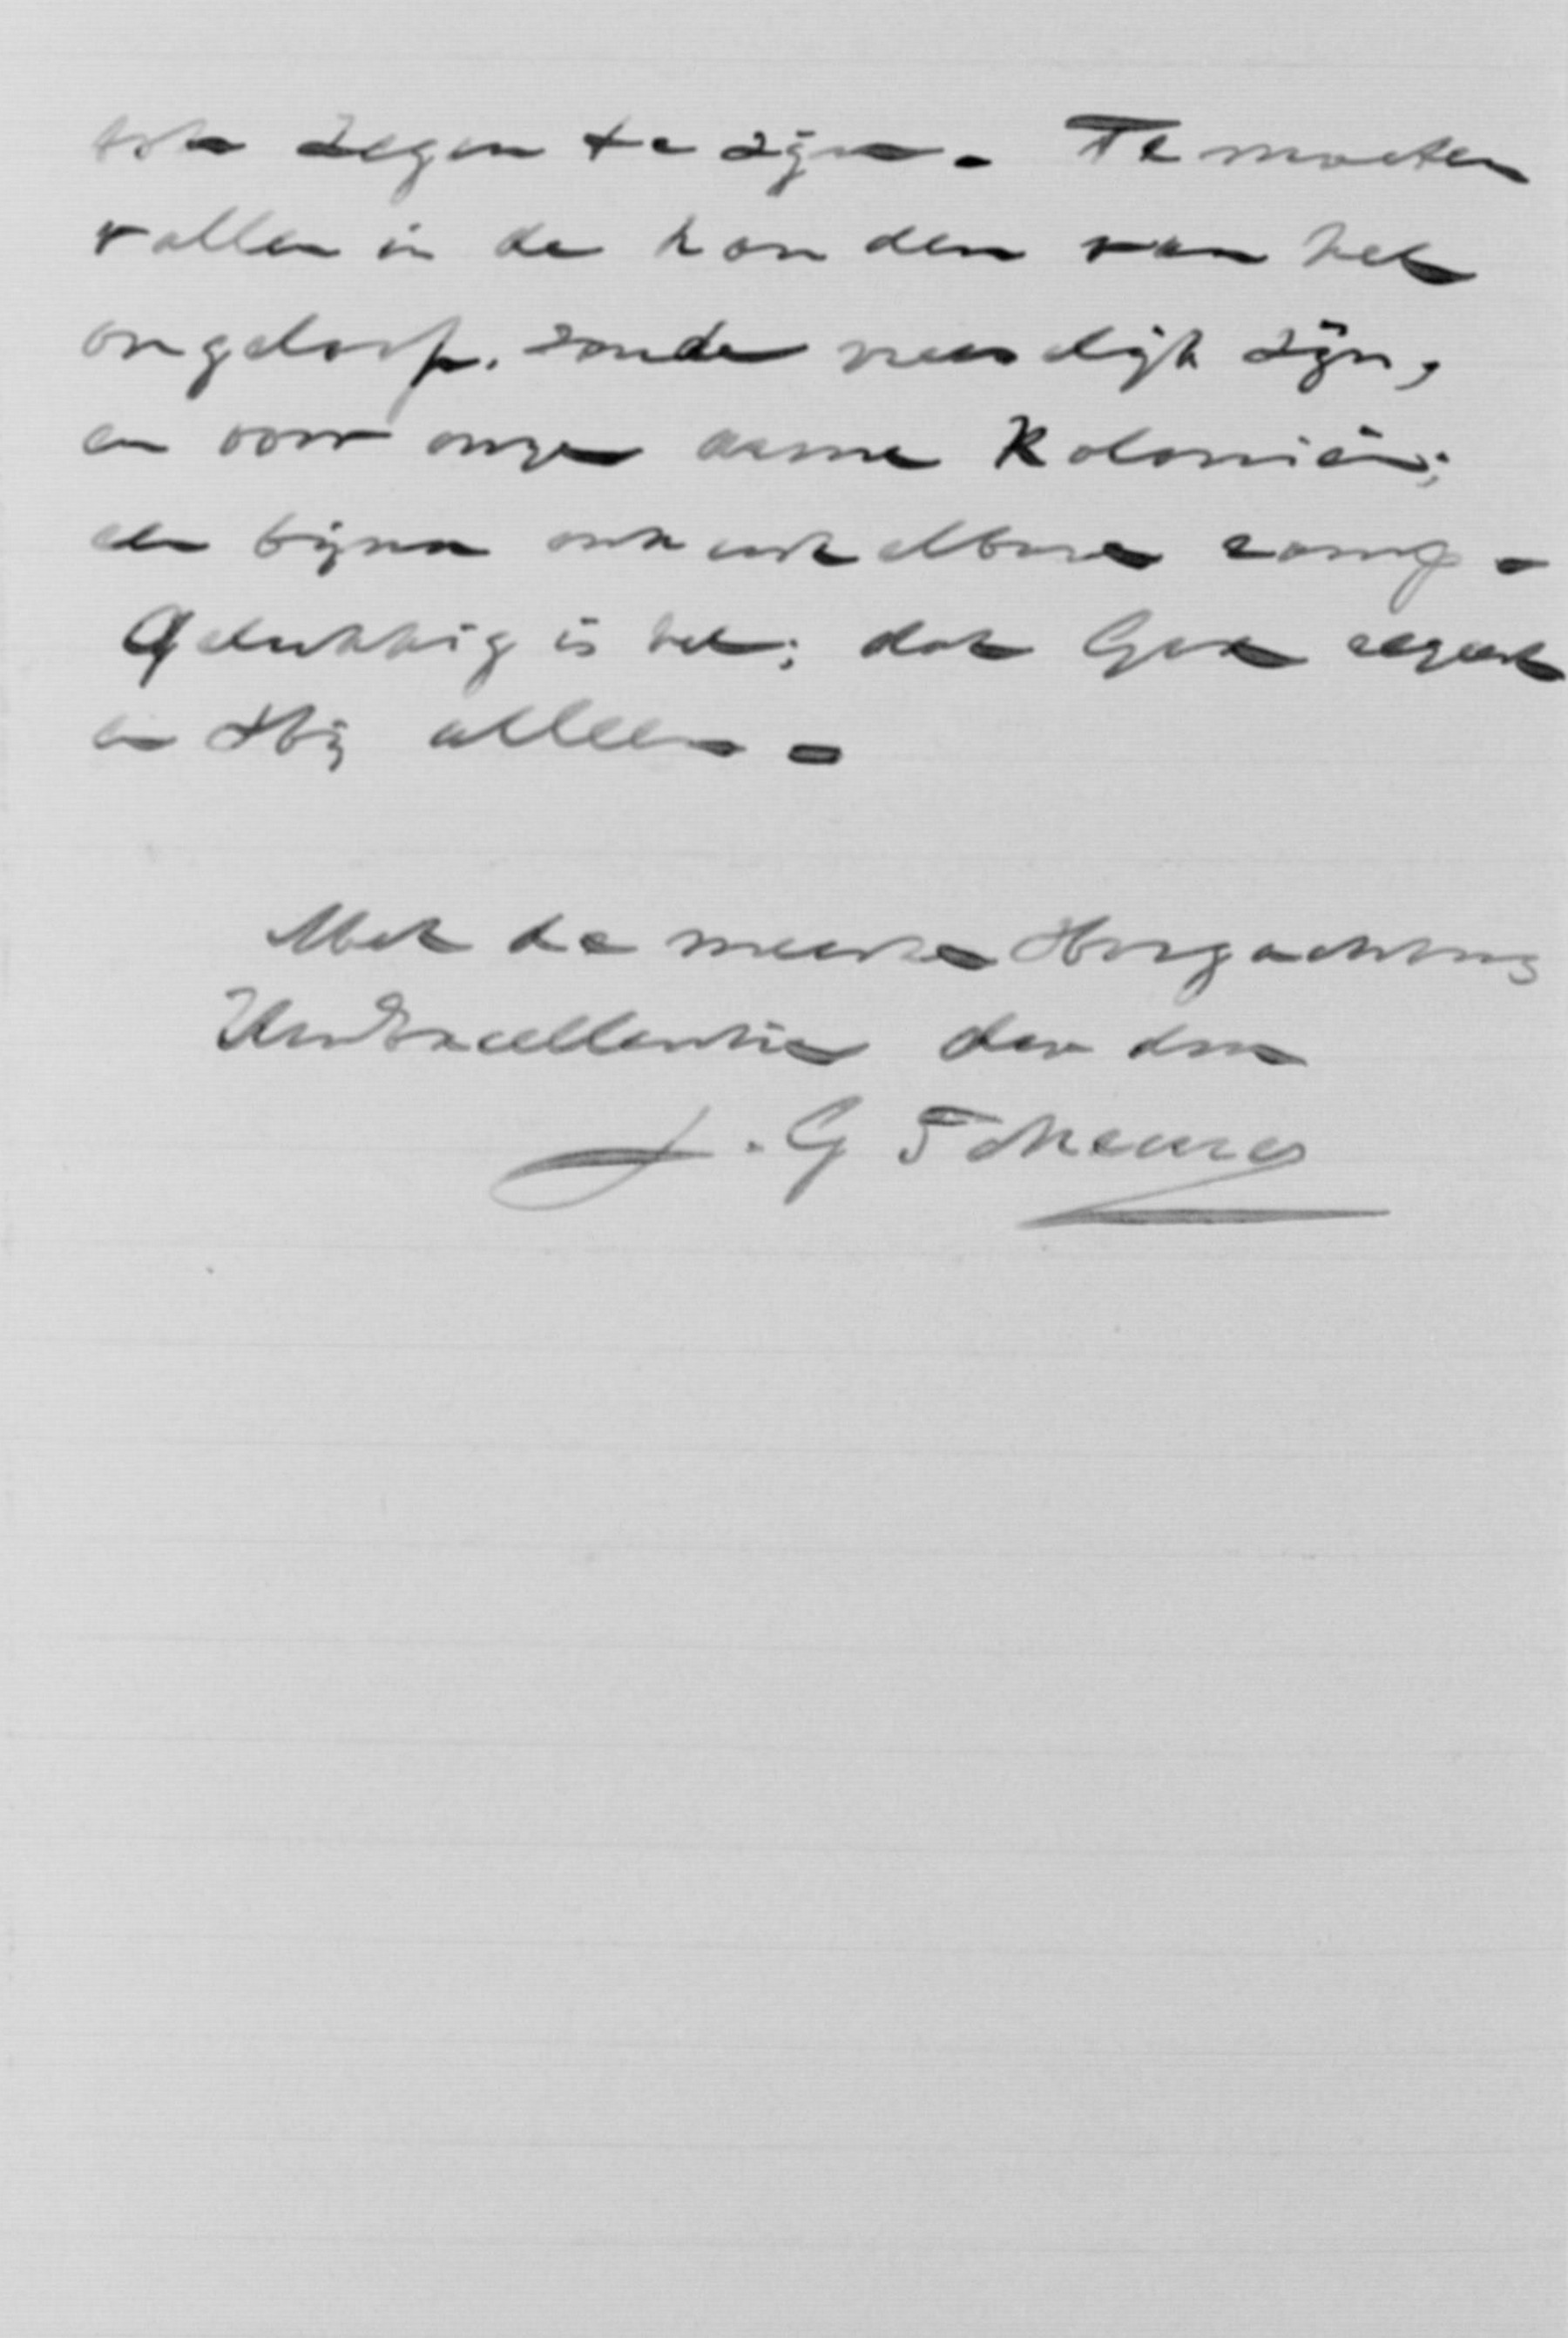 tot zegen te zijn. Te moeten
vallen in de handen van het
ongeloof. zoude vreeselijk zijn,
en voor onze arme Koloniën;
een bijna onherstelbare ramp.
Gelukkig is het; dat God regeert
en Hij alleen.
Met de meeste Hoogachting
Uw Excellenties dw dnr
J. G Scheurer